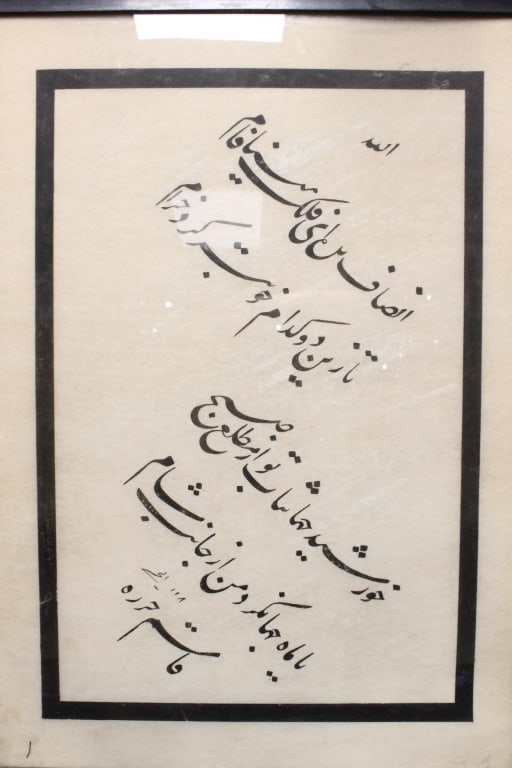 الله
انصاف بده ای فلک مینا فام
تا زین دو کدام خوبتر کرد خرام
خورشید جهانتاب تو از مطلع صبح
یا ماه جهانگرد من از جانب شام
قاسم